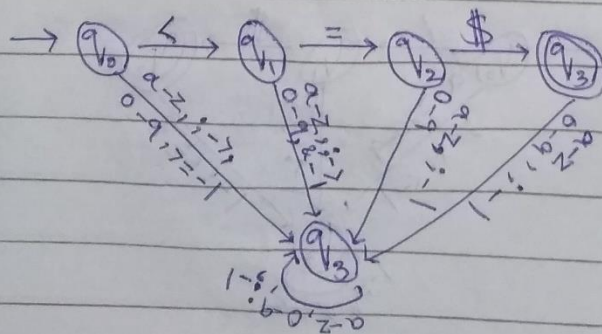 q0 < q1 = q2 $ q3
a-z, ; -7,
0-9, 7= -1
a-z, ; -7
0-9, 2 -1
a-z, ; -1
0-9
a-z, ; -1
0-9
q3
a-z, 0-9, ; -1